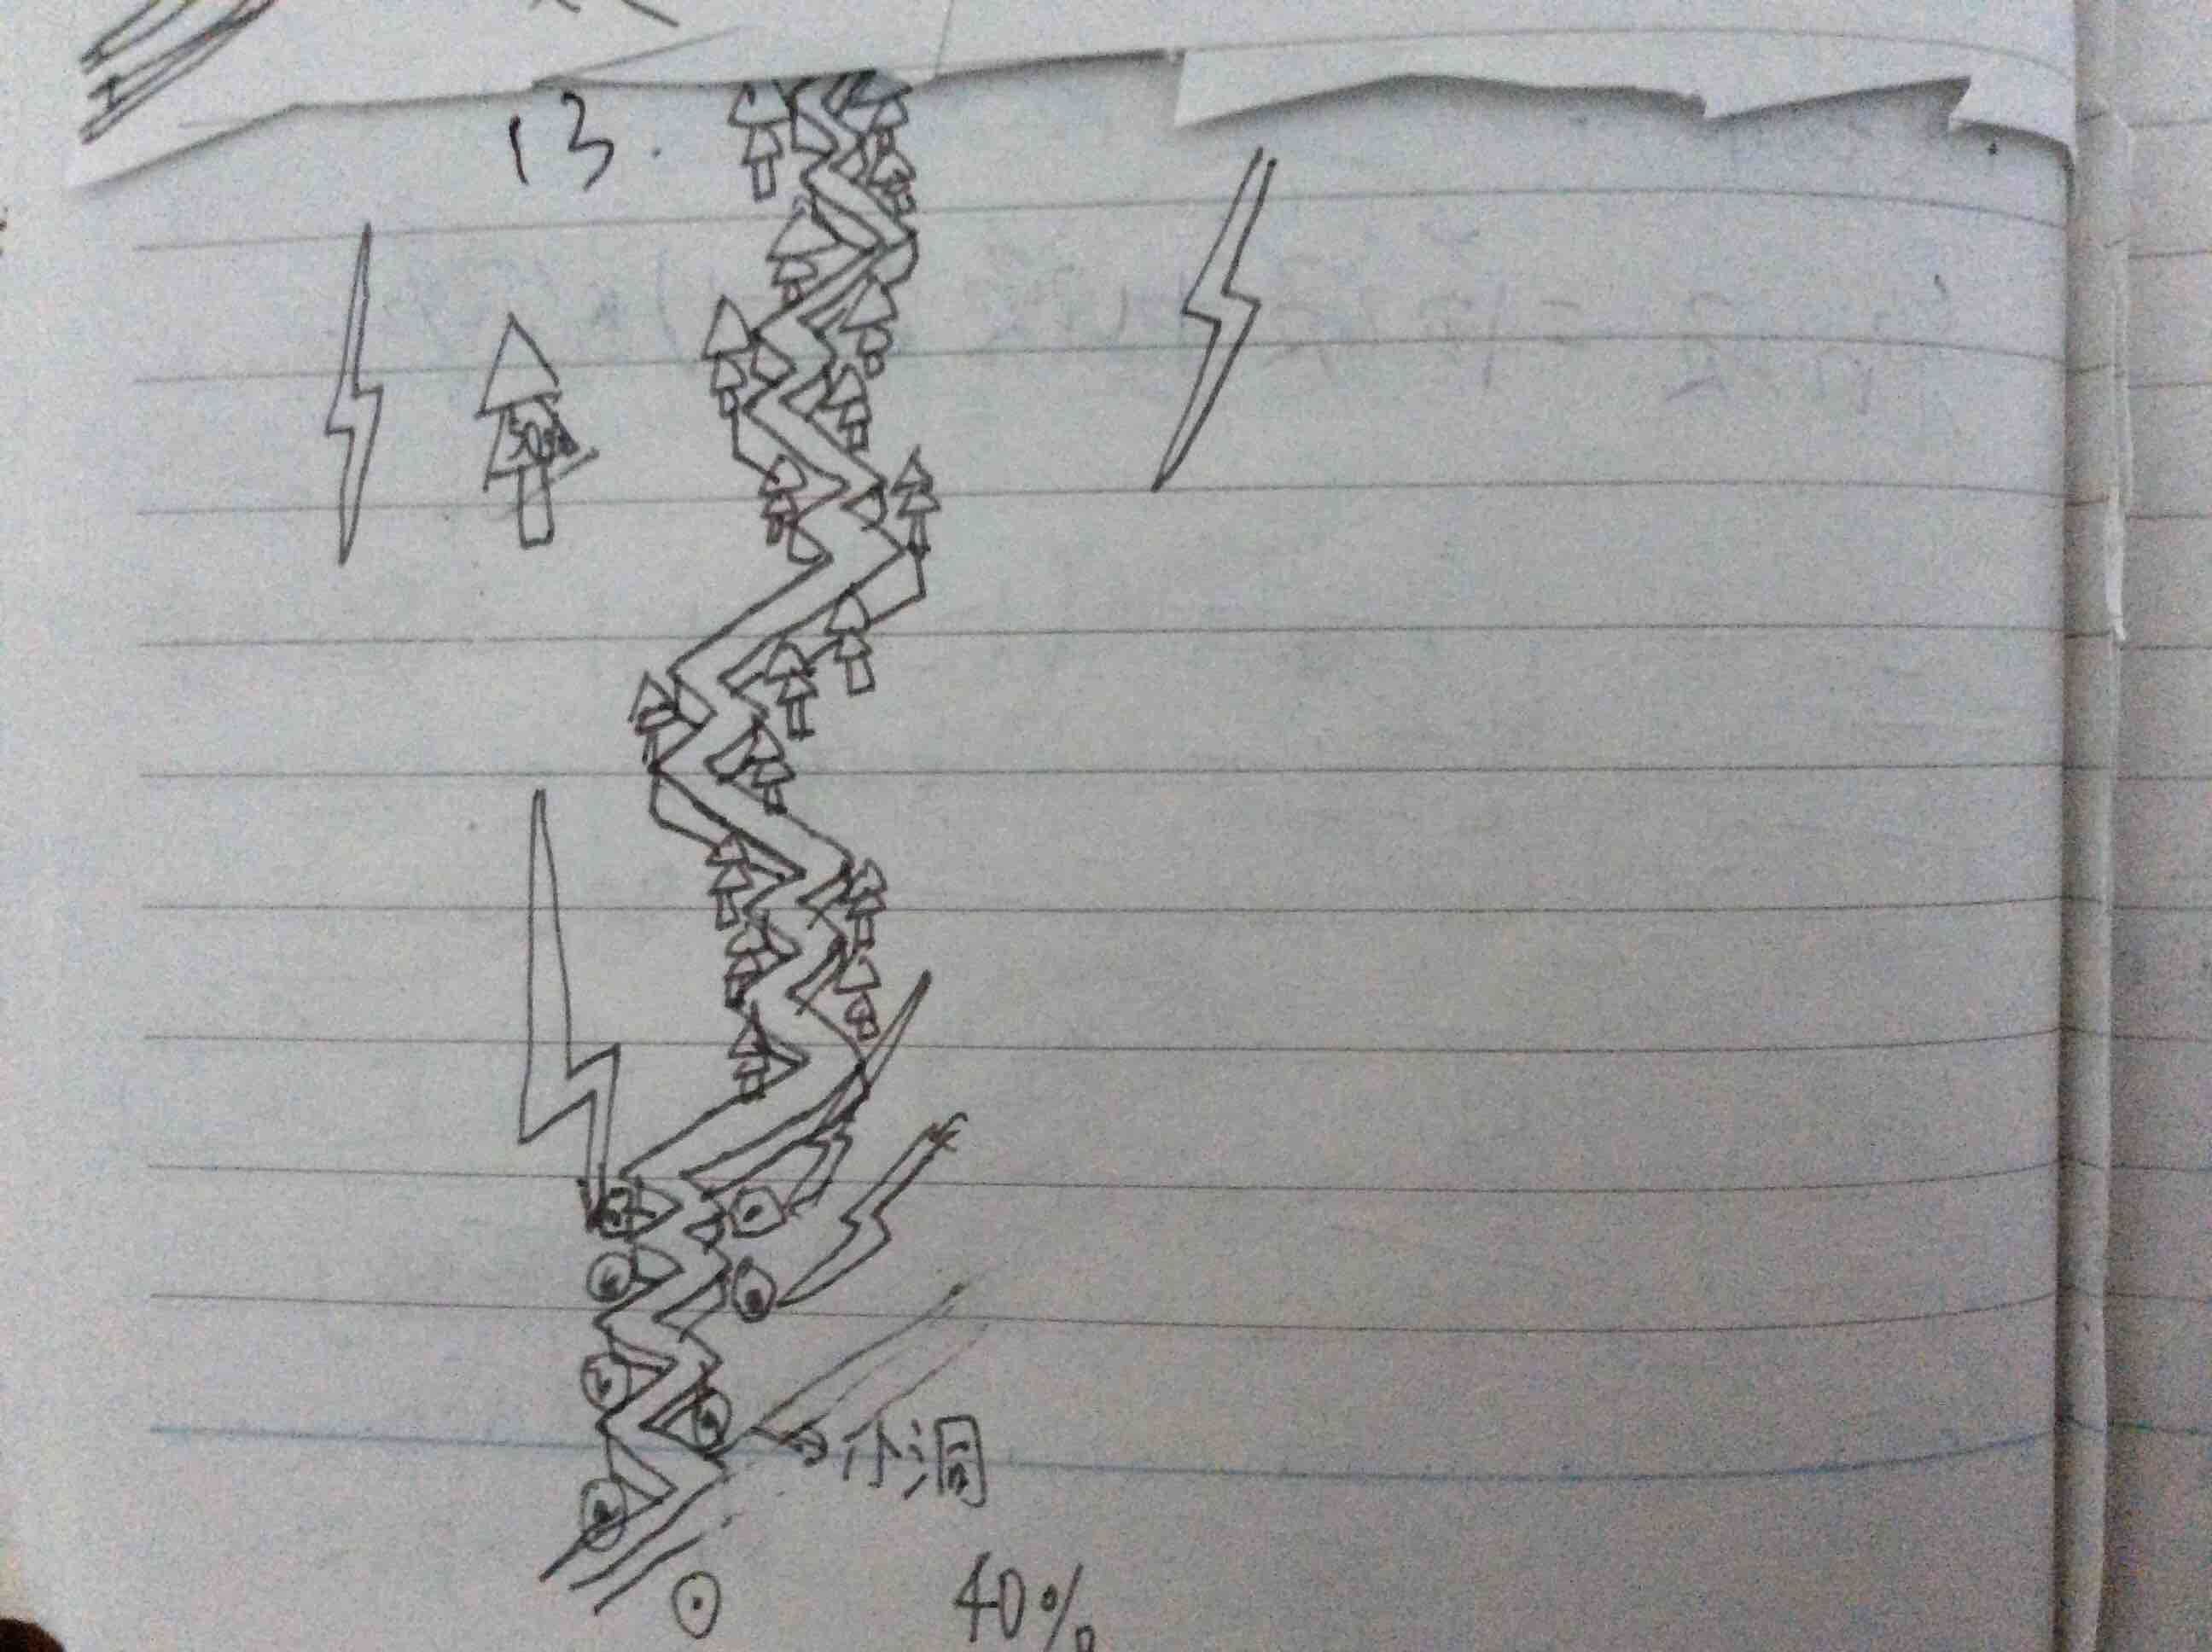 13.
小洞
40%